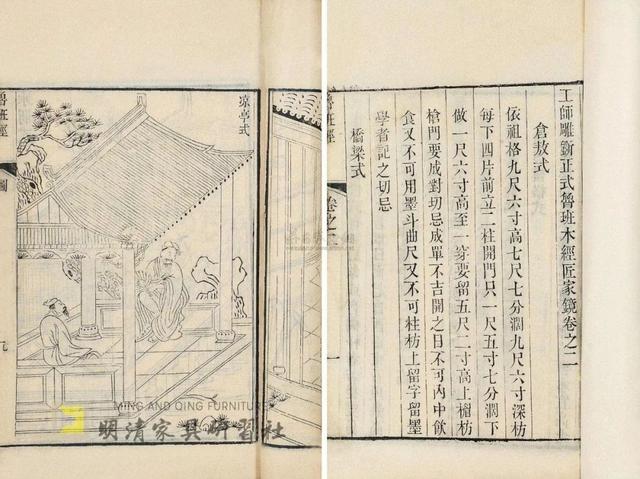 工師雕斵正式魯班木經匠家鏡卷之二
倉敖式
依祖格九尺六寸高七尺七分濶九尺六寸深枋
每下四片前立二柱開門只一尺五寸七分濶下
做一尺六寸高至一穿要留五尺二寸高上楣枋
槍門要成對切忌成單不吉開之日不可內中飲
食又不可用墨斗曲尺又不可柱枋上留字留墨
學者記之切忌
橋梁式
魯班經
卷之二
一
凉亭式
魯班經
圖
九
MING AND QING FURNITURE
明清家具研習社